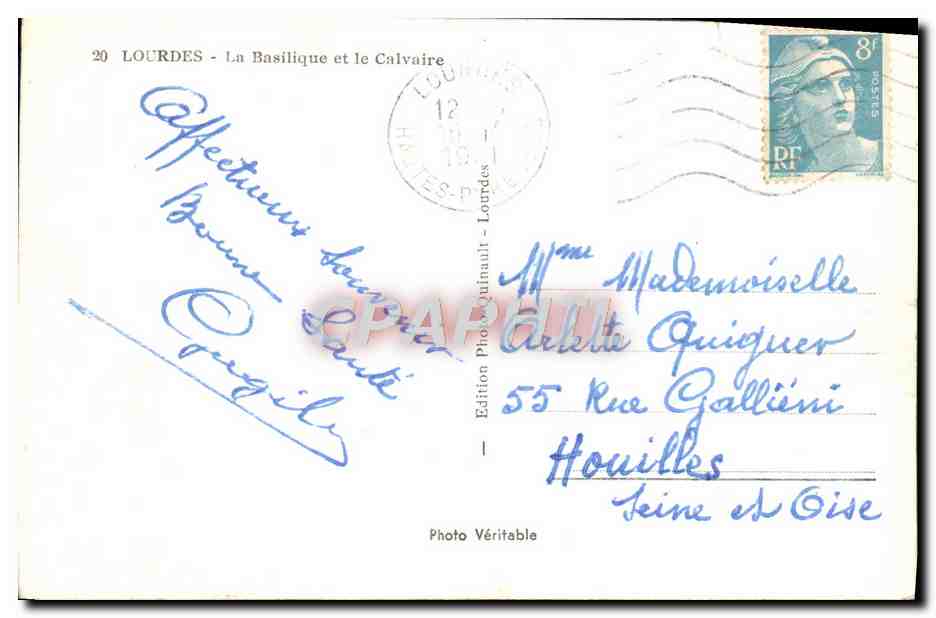 20 LOURDES - La Basilique et le Calvaire
LOURDES
12
HAUTES-PYRE
8F
POSTES
RF
Affectueux Souvenir
Bonne Santé
Mme Mademoiselle
Arlette Quiguer
55 Rue Galliéni
Houilles
Seine et Oise
Edition Photo Quinault - Lourdes
CPAPHIL
Photo Véritable